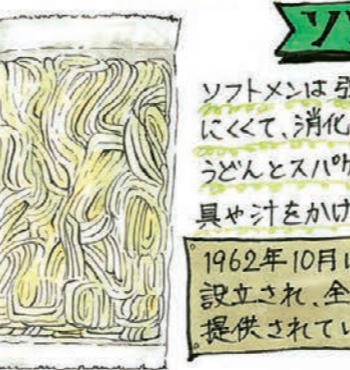 ソ
ソフトメンは
にくくて、消化
うどんとスパゲ
具や汁をかけ
1962年10月に
設立され、全
提供されてい